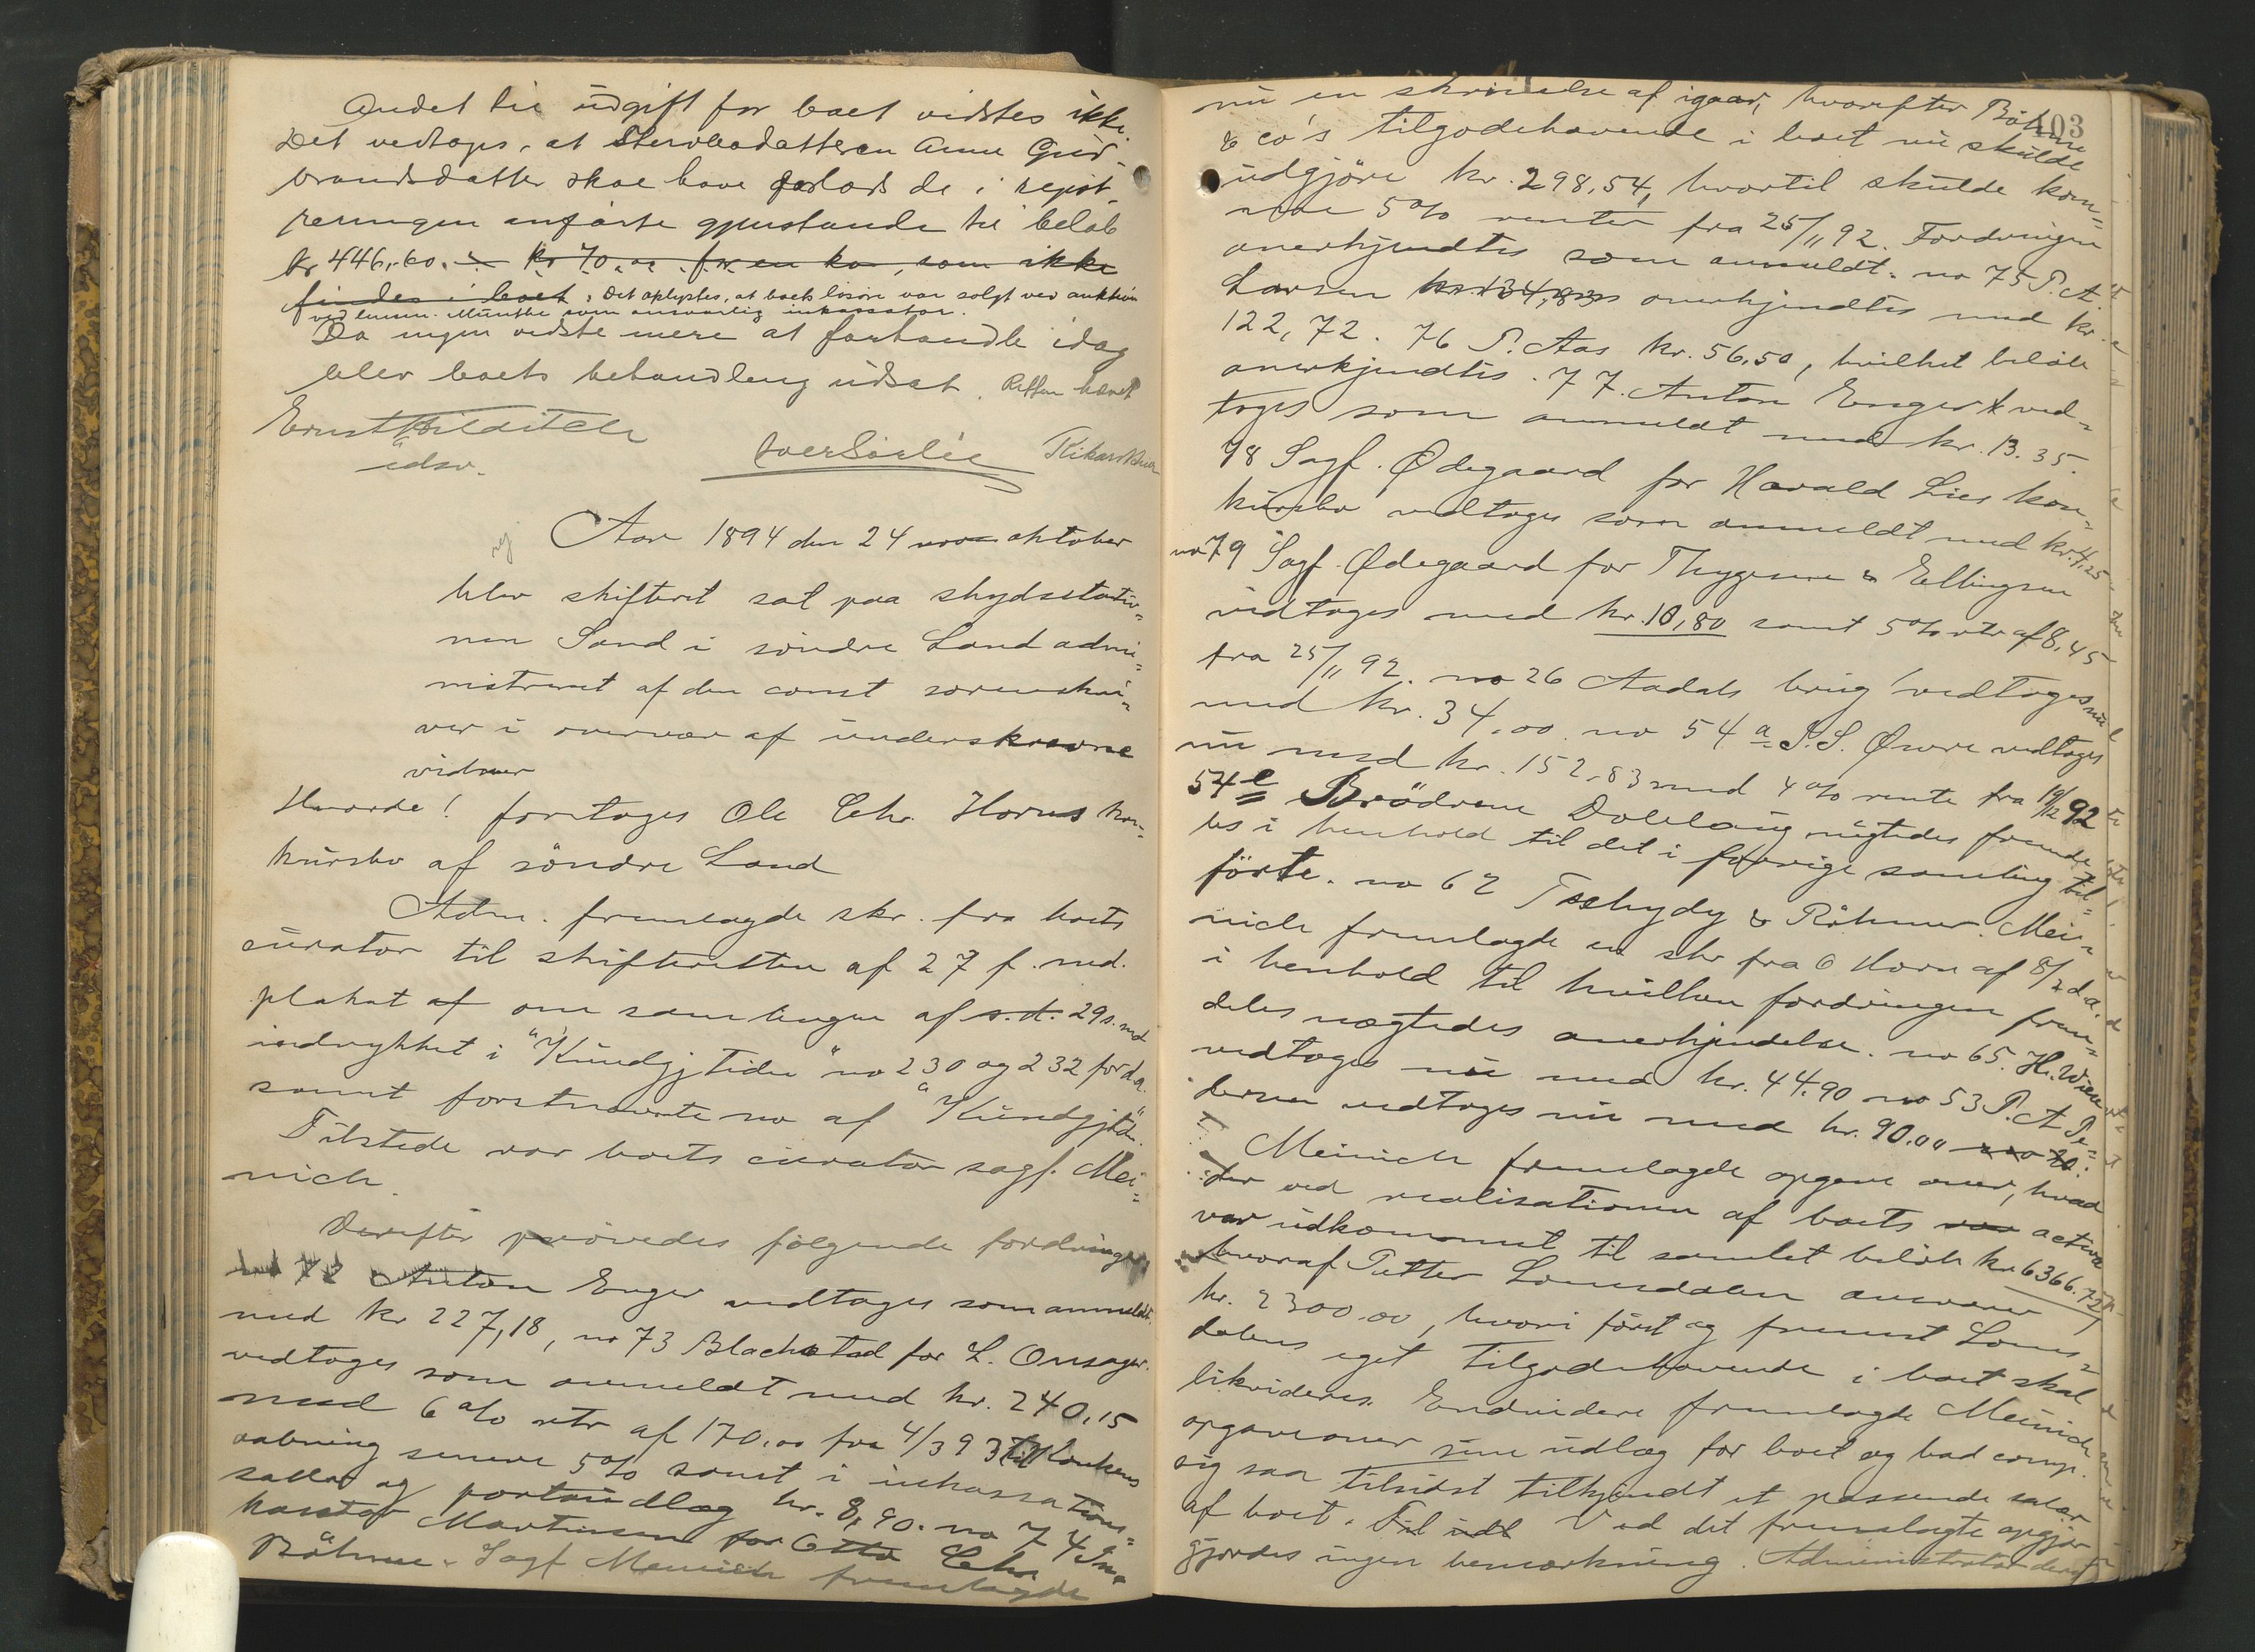 Andet til udgift for boet vidstes ikke.
Det vedtoges, at Stervbodatteren Anne Gud-
brandsdatter skal have forlods de i regist-
reringen anførte gjenstande til beløb
kr 446,60. kr 70,00 for en ko, som ikke
findes i boet, Det oplystes, at boets løsøre var solgt ved auktion
ved lensm. Münthe som ansvarlig inkassator.
Da ingen vidste mere at forhandle idag
blev boets behandling udsat. Retten hævet
Ernst Hilditch
Aar 1894 den 24 nov oktober
blev skifteret sat paa skydsstatio=
nen Sand i søndre Land admi=
nistreret af den const sorenskri=
ver i overvær af underskrevne
vidner
Hvorda! foretoges Ole Chr. Horns kon=
kursbo af söndre Land
Adm. fremlagde skr. fra boets
curator til skifteretten af 27 f. md.
plakat af om samlingen af s.d. 29 s. md
indrykket i "Kundgj tiden" no 230 og 232 for d.a.
samt førstnævnte no af "Kundgjtd".
Tilstede var boets curator sagf. Mei=
nich.
Derefter prövedes følgende fordringer
72 Anton Enger vedtoges som anmeldt
med kr 227,18, no 73 Blackstad for L. Onsager.
vedtoges som anmeldt med kr. 240,15
med 6 % rtr af 170,00 fra 4/3 93 til konkurs
aabning senere 5% samt i inkassations=
sallær og portoudlæg kr. 8,90. no 74 In=
kassator Martinsen for Otto Chr.
Böhme. Sagf Meinich fremlagde
403
nu en skrivelse af igaar, hvorefter Böhme
& co's tilgodehavende i boet nu skulde
udgjöre kr. 298,54, hvortil skulde kom=
me 5% renter fra 25/11 92. Fordringen
anerkjendtes som anmeldt. no 75 P. A.
Larsen kr. 134,83 anerkjendtes med kr.
122,72. 76 P. Aas kr. 56,50, hvilket beløb
anerkjendtes. 77. Anton Enger ved=
toges som anmeldt med kr. 13.35.
78 Sagf. Ødegaard for Harald Lies kon=
kursbo vedtoges som anmeldt med kr. 4,25
no 79 Sagf. Ødegaard for Thygesen & Ellingsen
vedtoges med kr. 10,80 samt 5% rtr af 8,45
fra 25/11 92. no 26 Aadals brug vedtoges nu
med kr. 34,00. no 54 a S. Øvre vedtoges
nu med kr. 152,83 med 4 % rente fra 19/12 92
54 Brödrene Dobloug nægtedes fremde=
les i henhold til det i forrige samling til=
förte. no 62 Tschydy & Röhmer. Mei=
nich fremlagde en skr fra O Horn af 8/2 d.a.
i henhold til hvilken fordringen frem=
deles nægtedes anerkjendelse. no 65. H. Wiese
vedtoges nu med kr. 44.90 no 53 P. A. Pe=
dersen vedtoges nu med kr. 90.00
Meinich fremlagde opgave over, hvad
der ved realisationen af boets var activa
var udkommet til samlet beløb kr 6366.72,
hvoraf Petter Lomsdalen ansvarer
kr. 2300.00, hvori först og fremst Loms=
dalens eget tilgodehavende i boet skal
likvideres. Endvidere fremlagde Meinich
opgave over sine udlæg for boet og bad comp.
sig saa tilsidst tilkjendt et passende salær
af boet. Til udl Ved det fremlagte opgjör
gjordes ingen bemærkning. Administrator